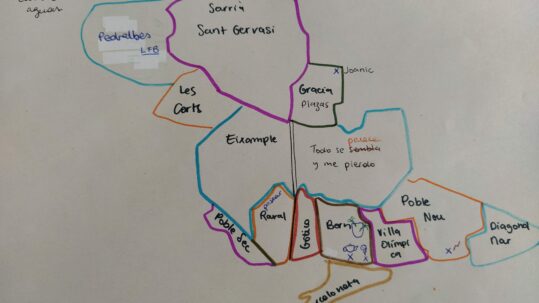 aguas
Sarrià
Sant Gervasi
Pedralbes
LFB
Joanic
Les
Corts
Gracia
plazas
Eixample
parece
Todo se sembla
y me pierdo
Poble
Nou
Poble Sec
Raval
Gotico
Born
Villa
Olimpi
ca
Diagonal
Mar
celoneta